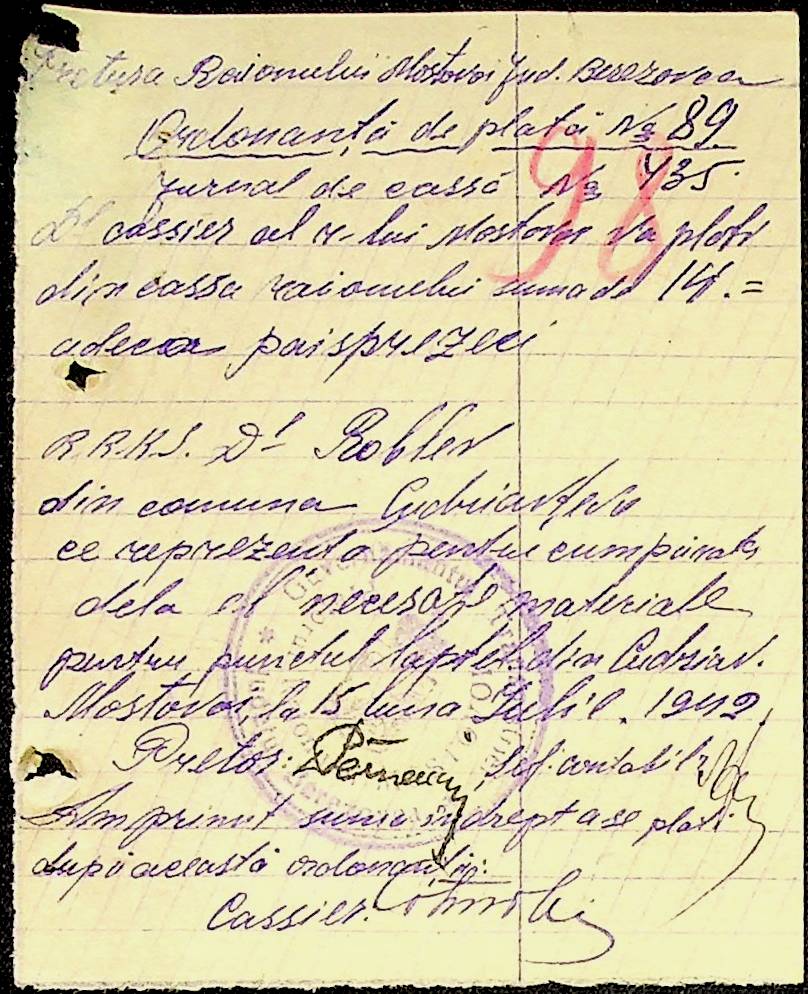 Pretura Raionului Mostovoi Jud. Berezovca
Ordonanță de plată № 89
Jurnal de cassă № 435
98
Dl cassier al r-lui Mostovoi va plăti
din cassa raionului suma de 14.=
adeca paisprezeci
R.R.K.S. Dl Robler
din comuna
ce reprezentă pentru cumpărate
dela el necesare materiale
pentru punctul laptelui din Cudriav.
Mostovoi, la 15 luna Iulie. 1942
Pretor: Șef. contabil:
Am primit suma indrept a se plăti
după această ordonanță:
Cassier.